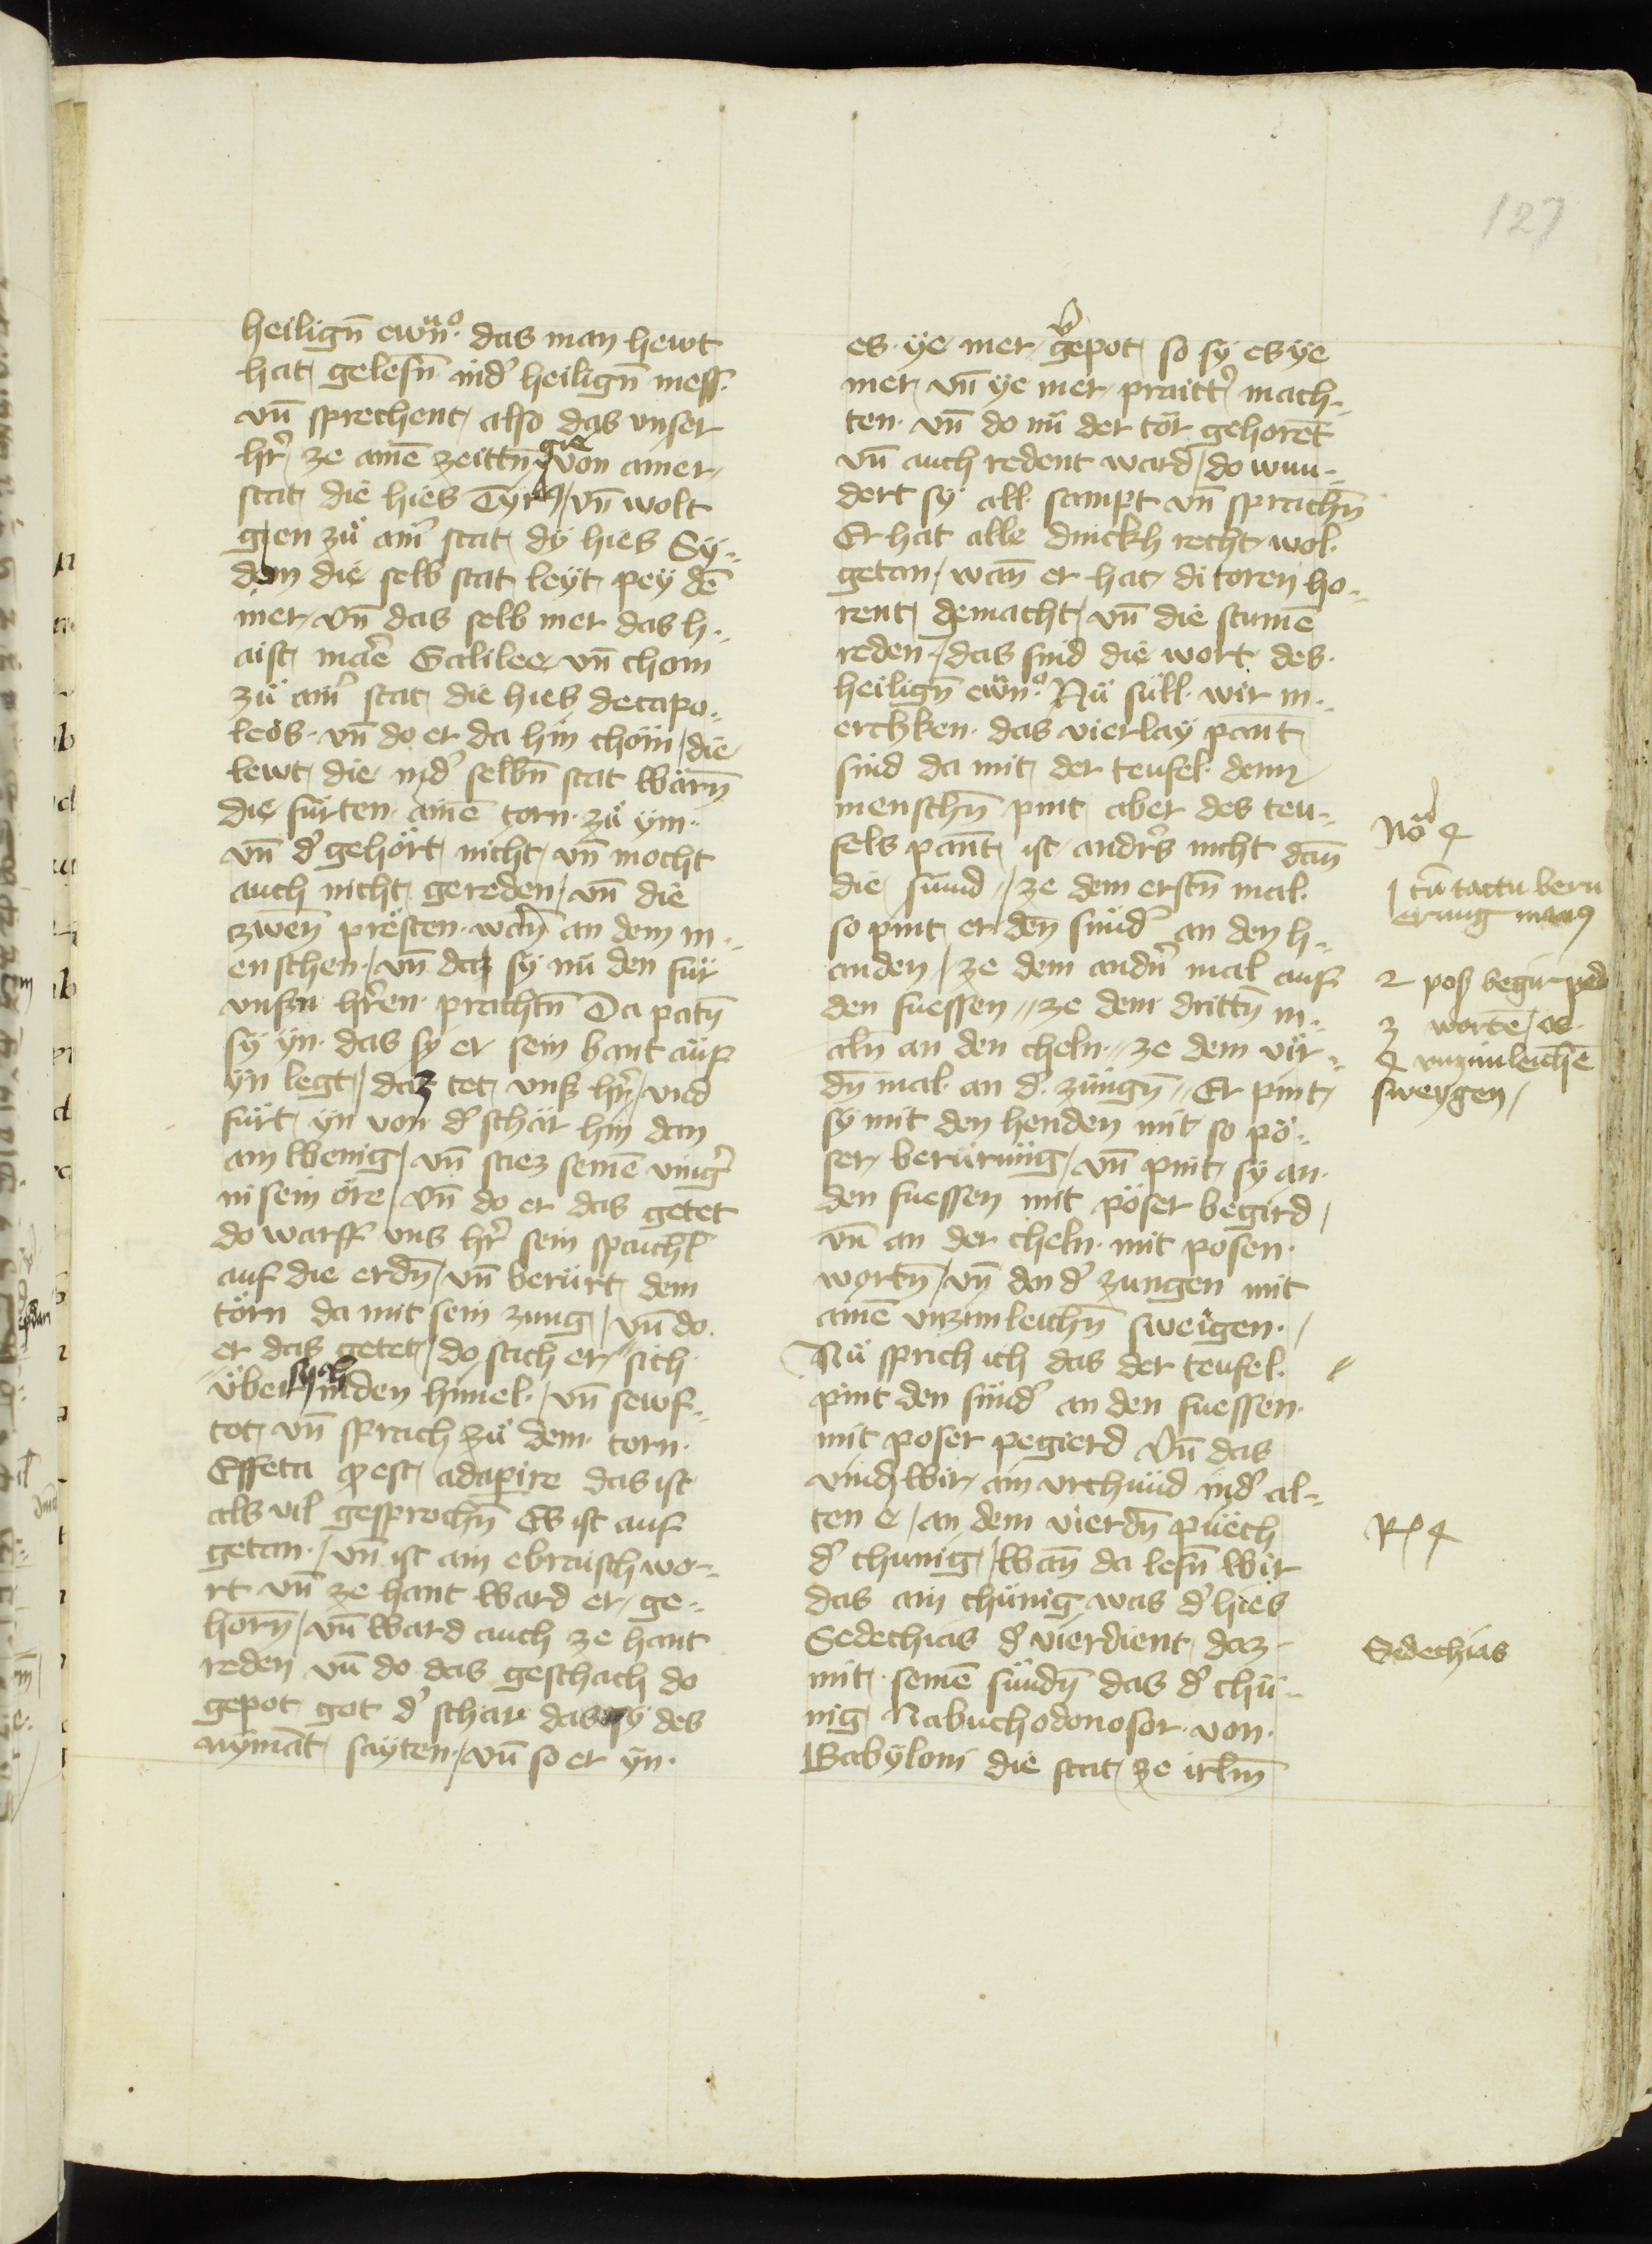 127
heilign̄ ewn̄ᵒ· das man hewt
hat gelesn̄ ind' heilign̄ mess·
vn̄ sprechent also das vnser
hr̄ ze ainē zeittn̄ gie von ainer
stat die hies Tyrꝰ / vn̄ wolt
gien zü aīr stat dÿ hies Sÿ„
don die selb stat leÿt peÿ dē
mer / vn̄ das selb mer das h„
aist marē Galilee vn̄ chom
zü ainr̄ stat die hies decapo„
leos· vn̄ do er da hin chöm / die
lewt die ind' selbn̄ stat warn̄
die fürten ainē torn· zü ÿm·
vn̄ d' gehört nicht / vn̄ mocht
auch nicht gereden / vn̄ die
zwen̄ presten· warn̄ an dem m„
enschen· / vn̄ daz sÿ nü den für
vnsn̄ hr̄en· prachtn̄ Da patn̄
sÿ ÿn· das sÿ er sein hant auf
ÿn legt / daz tet vns hr̄ / vnd
fürt ÿn von d' schar hin dan
ain wenig / vn̄ stiez seinē ving'
in sein öre / vn̄ do er das getet
do warff vns hr̄ sein spaichl̄
auf die erdn̄ / vn̄ berürt dem
törn da mit sein zung / vn̄ do
er das getet / do sach er sich
über sych in den himel· / vn̄ sewf„
tot vn̄ sprach zü dem· torn·
Effeta ꝙ est adaperire das ist
als vil gesprochn̄ Es ist auf
getan· / vn̄ ist ain ebraisch wo„
rt vn̄ ze hant ward er / ge„
horn̄ / vn̄ ward auch ze hant
reden vn̄ do das geschach do
gepot got d' schar das sÿ des
nÿmāt sayten· / vn̄ so er ÿn·
es· ÿe mer / v'gepot so sÿ es ÿe
mer / vn̄ ÿe mer / praitt' mach„
ten· vn̄ do nü der tör gehorēt
vn̄ auch redent ward / do wun„
dert sÿ all· sampt vn̄ sprachn̄
Er hat alle dinckh recht wol·
getan / wan̄ er hat di toren ho„
rent gemacht / vn̄ die stumē
reden / das sind die wort des·
heilign̄ ewn̄ᵒ· Nü süll· wir m„
erchken· das vierlaÿ pant
sind da mit der teufel· denn
menschn̄ pint aber des teu„
fels pant ist andr's nicht dan̄
die sünd / ze dem erstn̄ mal·
so pint er den̄ sünd' an den h„
anden / ze dem andn̄ mal auf
den fuessen / ze dem drittn̄ m„
aln̄ an den cheln· / ze dem vir„
dn̄ mal· an d' züngn̄ / Er pint
sÿ mit den henden mit so pö„
ser / berürüng / vn̄ pint sÿ an·
den fuessen mit pöser begird /
vn̄ an der cheln· mit posen·
wortn̄ / vn̄ an d' zungen mit
ainē vnzimleichn̄ sweigen· /
Nü sprich ich das der teufel·
pint den sünd' an den fuessen·
mit poser pegierd vn̄ das
vind wir / ain vrchünd ind' al„
ten e / an dem vierdn̄ püech
d' chunig / wan̄ da lesn̄ wir
das ain chünig was d' hies
Sedechias d' vierdient daz
mit· seinē sündn̄ das d' chü„
nig Nabuchodonosor· von·
Babÿloni die stat ze irlm̄
Noᵈ 4
1 cū tactu beru
erung manꝰ
2 poß begir ped
3 wortē / os·
4 vnzimleichē
sweygen /
Rᵉ 4
Sedechias